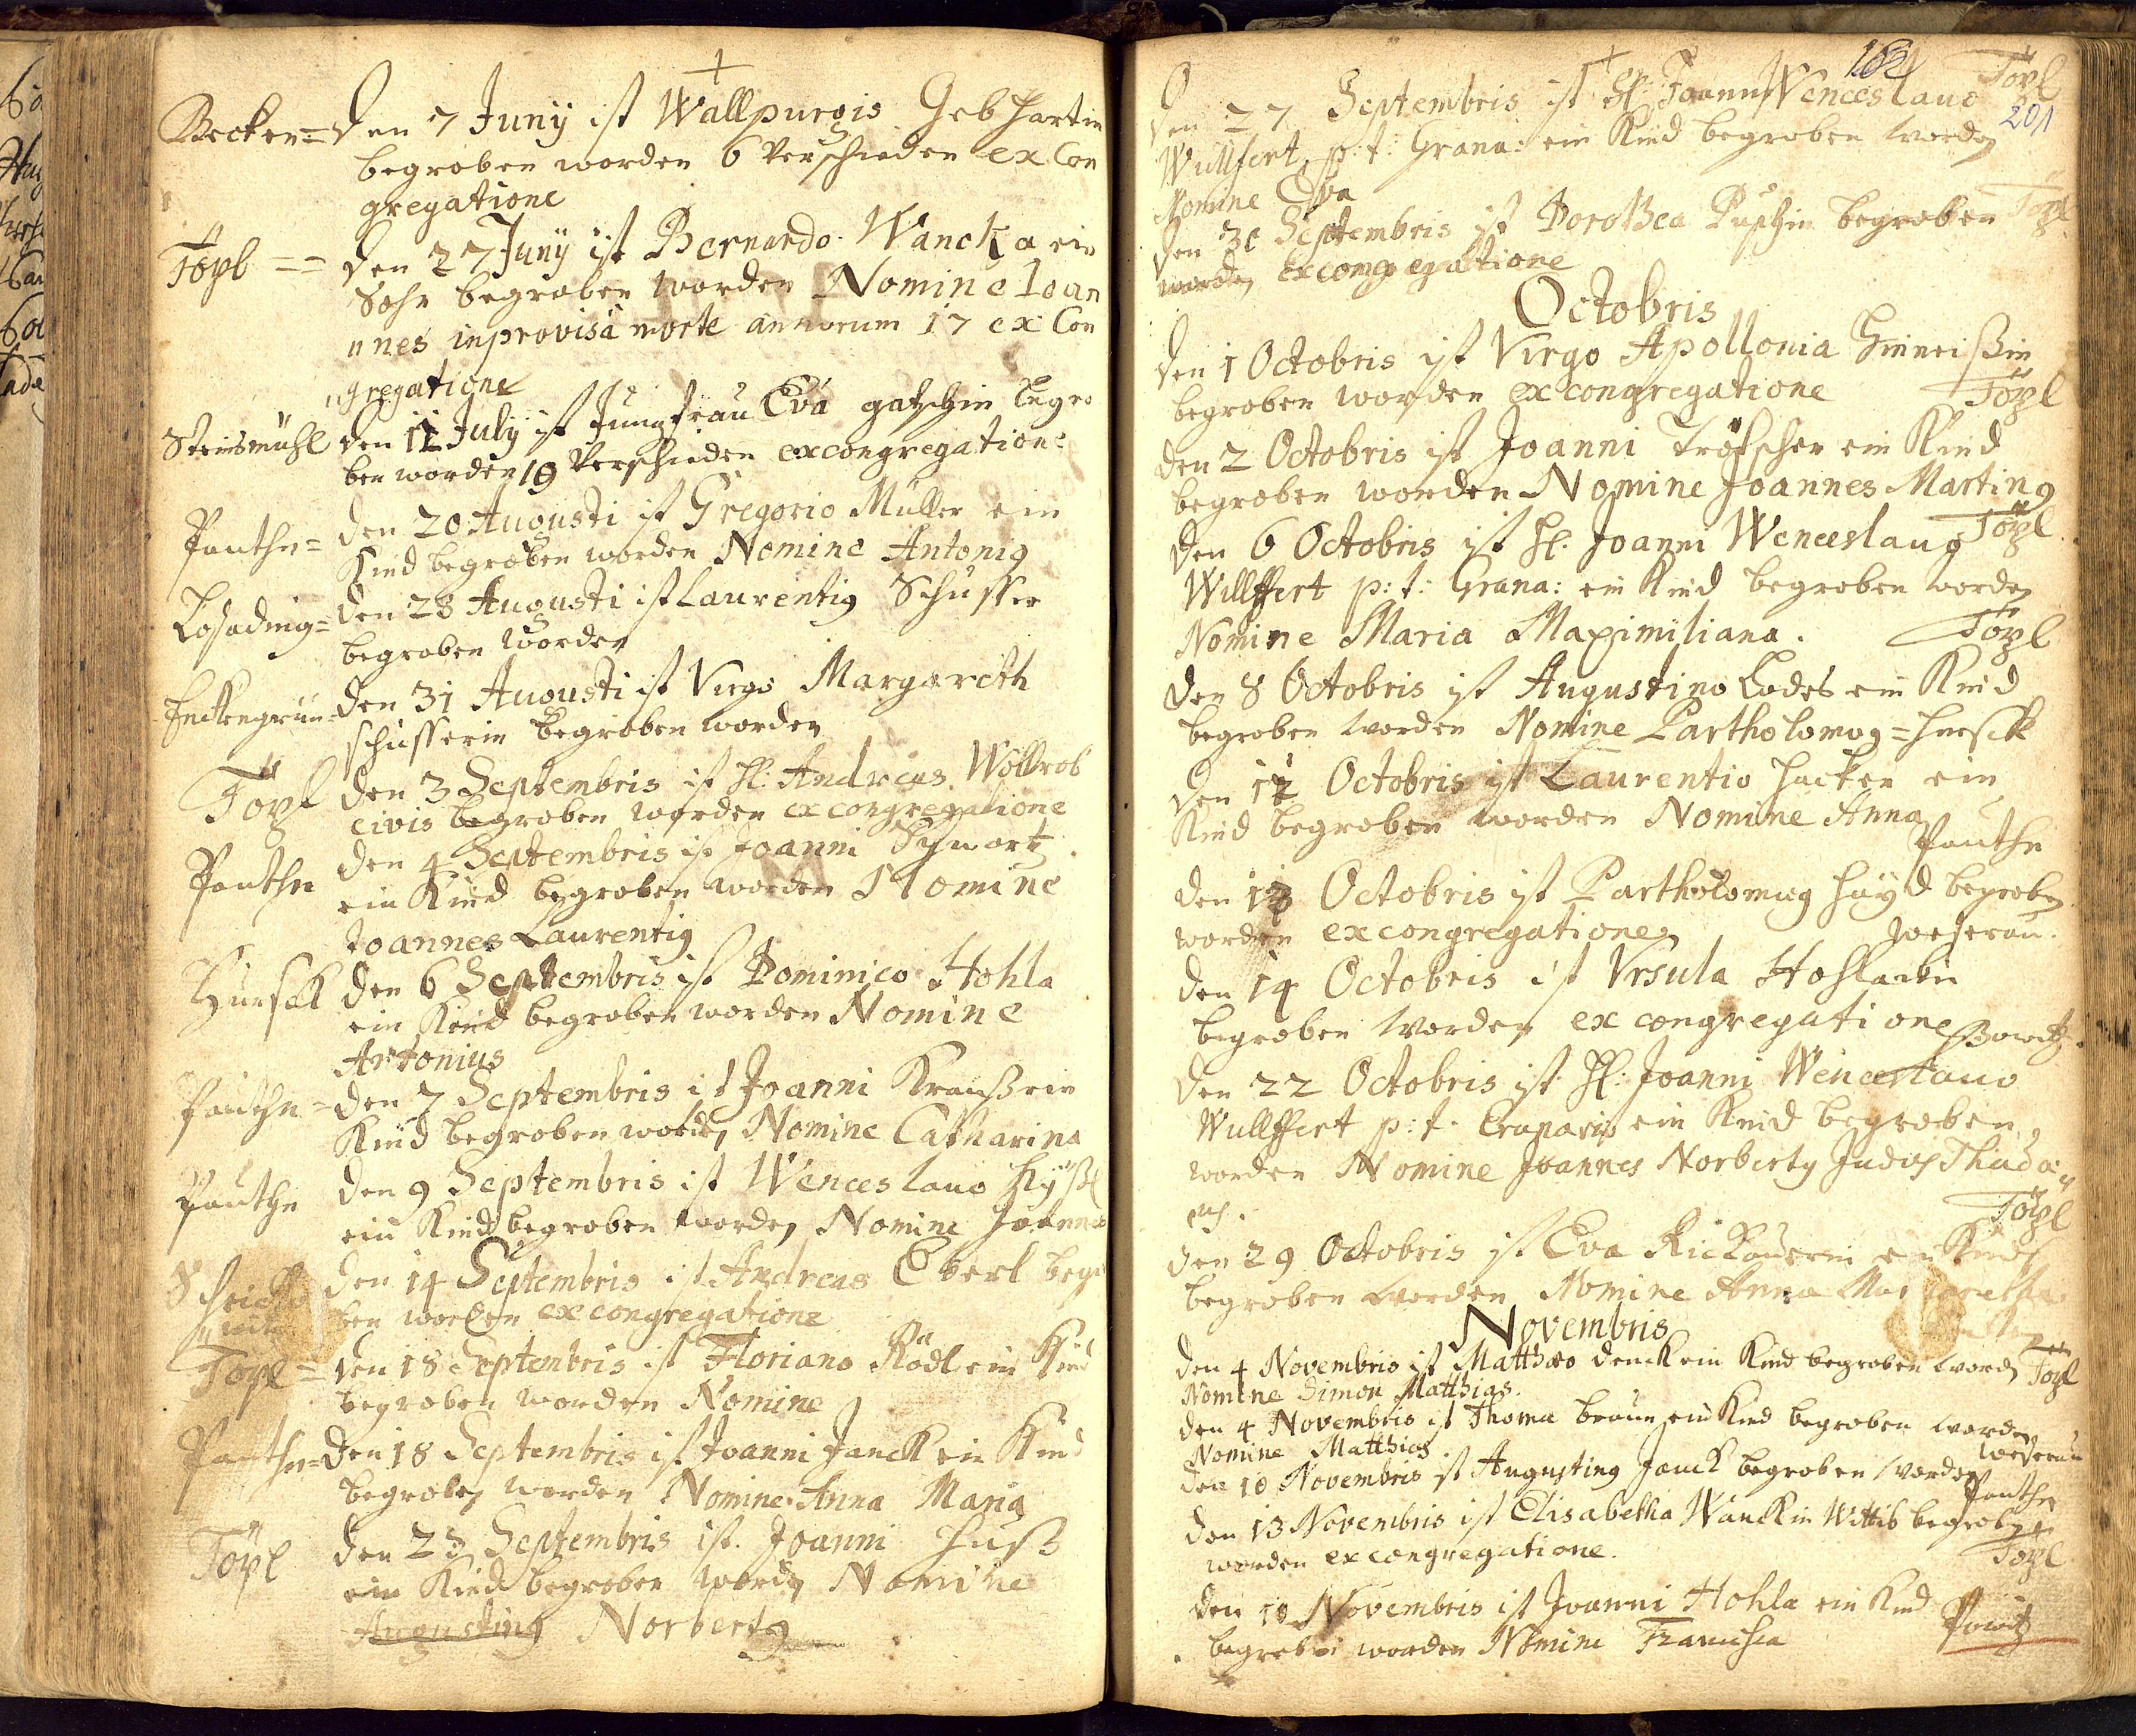 Becken = Den 7 Junij ist Wallpurgis Gebhartin
begroben worden 6 Verschieden ex Con
gregatione
Töpl == Den 27 Junij ist Bernardo Wancka ein
Sohn begroben worden Nomine Ioan
nes inprovisa morte annorum 17 ex Con
gregatione
Steinsmühl den 12 July ist Jungfrau Eva gatschin begro
ben worden 19 Verschieden ex congregatione
Pauthn = den 20 Augusti ist Gregorio Müller ein
Kind begroben worden Nomine Antonig
Losading = den 28 Augusti ist Laurentig Schusser
begroben worden
Hurkengrün = den 31 Augusti ist Virgo Margareth
schusserin begroben worden
Töpl den 3 Septembris ist H: Andreas Wollrob
civis begroben worden ex congregatione
Pauthn den 4 Septembris ist Joanni Schwartz
ein Kind begroben worden Nomine
Joannes Laurentig
Hursck den 6 Septembris ist Dominico Hohla
ein Kind begroben worden Nomine
Antonius
Pauthn = den 7 Septembris ist Joanni Krauß ein
Kind begroben worden Nomine Catharina
Pauthn den 9 Septembris ist Wenceslauo
ein Kind begroben worden Nomine Joannes
den 14 Septembris ist Andreas Eberl begro
ben worden ex congregatione
Töpl = den 18 Septembris ist Floriano Rödl ein Kind
begroben worden Nomine
Pauthn = den 18 Septembris ist Joanni Janck ein Kind
begroben worden Nomine Anna Maria
Töpl den 23 Septembris ist Joanni Huß
ein Kind begroben worden Nomine
Augusting Norbertg
Töpl
201
Den 27 Septembris ist H: Joanni Wenceslauo
Wullfert p: t: Grana: ein Kind begroben worden
Nomine Eva
Den 30 Septembris ist Dorothea Puschin begroben Töpl
worden ex congregatione
Octobris
Den 1 Octobris ist Virgo Apollonia
begroben worden ex congregatione Töpl
Den 2 Octobris ist Joanni Tröscher ein Kind
begroben worden Nomine Joannes Marting
Töpl
Den 6 Octobris ist H: Joanni Wenceslaug
Willffert p: t: Grana: ein Kind begroben worden
Nomine Maria Maximiliana. Töpl
Den 8 Octobris ist Augustino Lodes ein Kind
begroben worden Nomine Bartholomog = Hursck
Den 12 Octobris ist Laurentio Hacker ein
Kind begroben worden Nomine Anna
Pauthn
Den 13 Octobris ist Bartholomug Hayd begroben
worden ex congregatione weserau.
Den 14 Octobris ist Vrsula Hohlakin
begroben worden ex congregatione Powitz
Den 22 Octobris ist H: Joanni Wenceslauo
Wullffert p: t. Granario ein Kind begroben
worden Nomine Joannes Norbertg Judas Thada
eus. Töpl
Den 29 Octobris ist Eva Rickauerin ein Kind
begroben worden Nomine Anna Margaretha
Novembris
Den 4 Novembris ist Matthæo Denck ein Kind begroben word. Töpl
Nomine Simon Matthias.
Den 4 Novembris ist Thoma braun ein Kind begroben worden
Nomine Matthias. weserau
Den 10 Novembris ist Augusting Janck begroben worden
Pauthn
Den 13 Novembris ist Elisabetha Wanckin Wittib begroben
worden ex congregatione. Töpl
Den 18 Novembris ist Joanni Hohla ein Kind
begroben worden Nomine Francisca Powitz